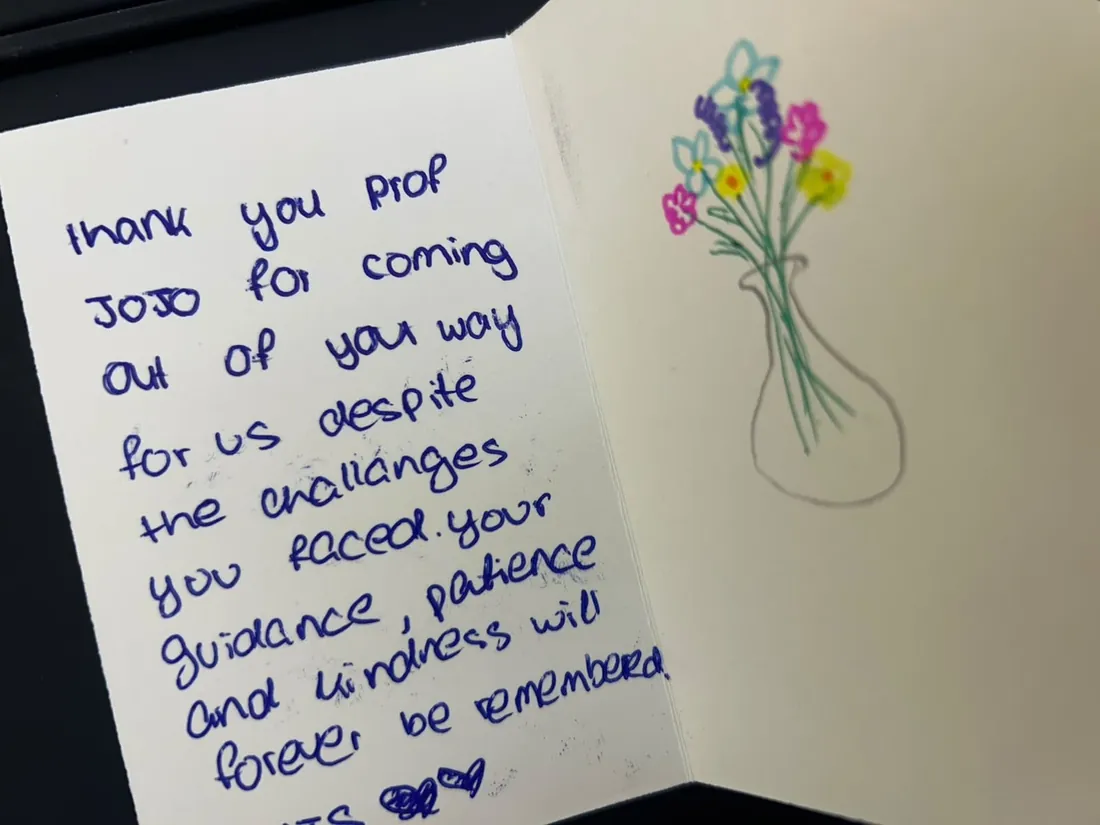 thank you prof
JOJO for coming
out of your way
for us despite
the challanges
you faced. your
guidance, patience
and kindness will
forever be remembered.